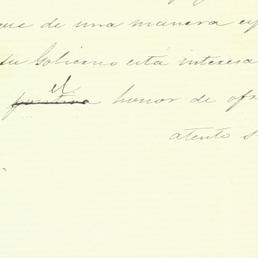 que de una manera
su Gobierno está interesa
el
honor de ofr
atento s